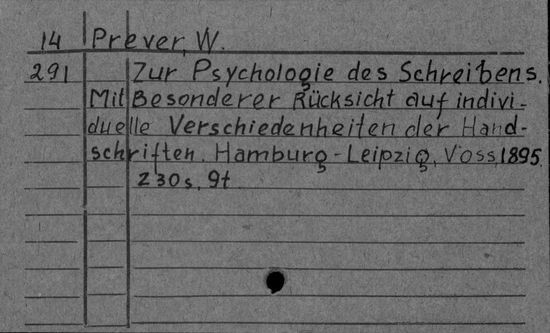 14 Prever, W.
291 Zur Psychologie des Schreibens.
Mit Besonderer Rücksicht auf indivi-
duelle Verschiedenheiten der Hand-
schriften. Hamburg-Leipzig, Voss, 1895.
230s, 9t